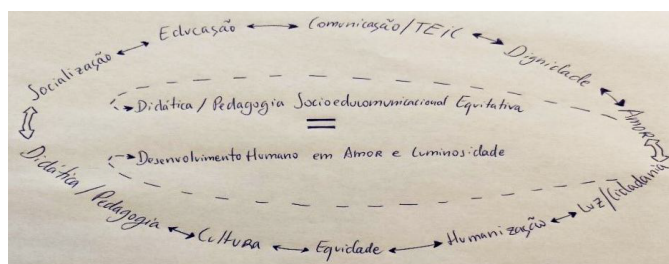 Socialização ↔ Educação ↔ Comunicação/TEIC ↔ Dignidade ↔ Amor
Didática / Pedagogia Socioeducomunicacional Equitativa
=
Desenvolvimento Humano em Amor e Luminosidade
Didática / Pedagogia ↔ Cultura ↔ Equidade ↔ Humanização ↔ Luz/Cidadania